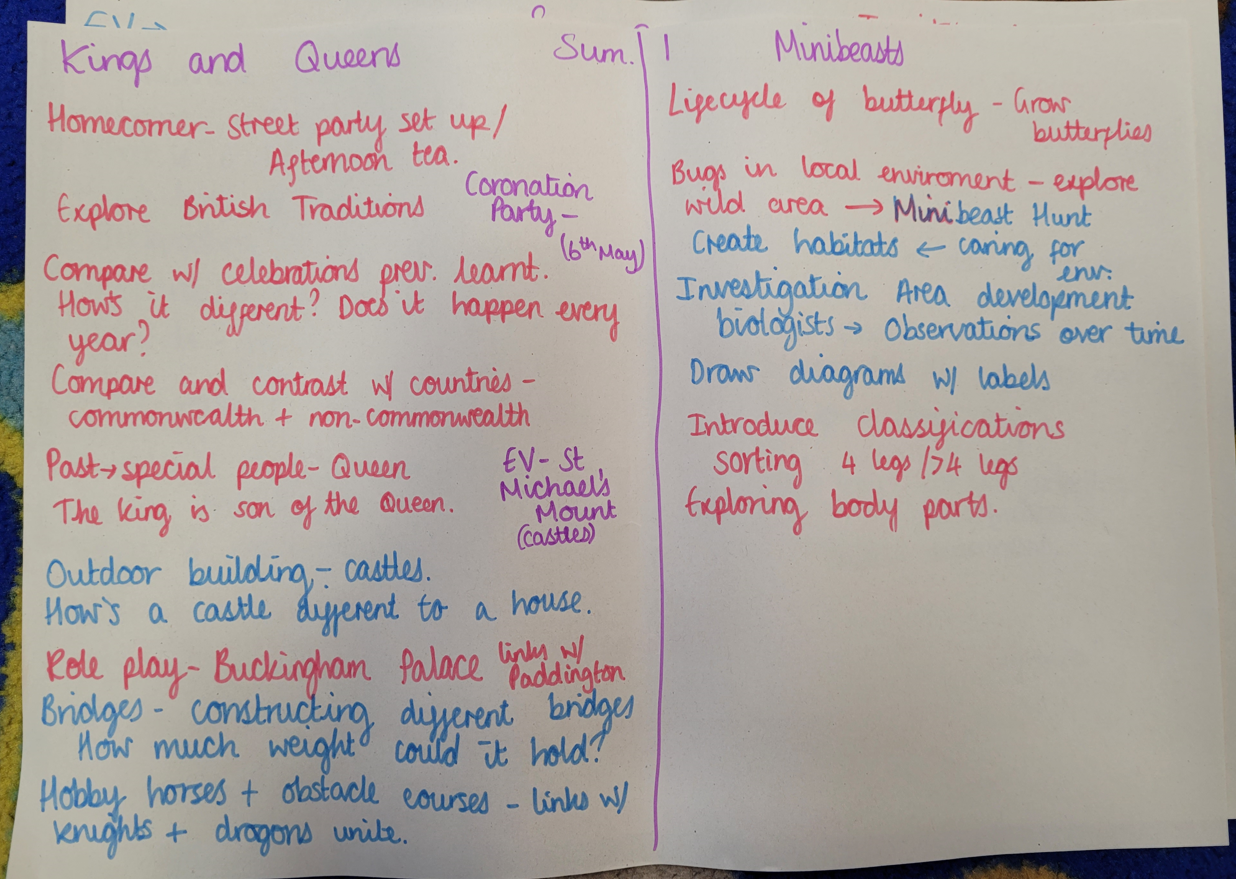 Kings and Queens
Sum. 1
Homecorner- Street party set up/
Afternoon tea.
Explore British Traditions
Coronation
Party-
(6th May)
Compare w/ celebrations prev. learnt.
How's it different? Does it happen every
year?
Compare and contrast w/ countries -
commonwealth + non-commonwealth
Past→special people- Queen
The king is son of the Queen.
EV- St
Michael's
Mount
(castles)
Outdoor building - castles.
How's a castle different to a house.
Role play- Buckingham Palace links w/
Paddington
Bridges - constructing different bridges
How much weight could it hold?
Hobby horses + obstacle courses - links w/
knights + dragons unite.
Minibeasts
Lifecycle of butterfly - Grow
butterflies
Bugs in local enviroment - explore
wild area → Minibeast Hunt
Create habitats ← caring for
env.
Investigation Area development
biologists → Observations over time
Draw diagrams w/ labels
Introduce classifications
sorting 4 legs />4 legs
Exploring body parts.